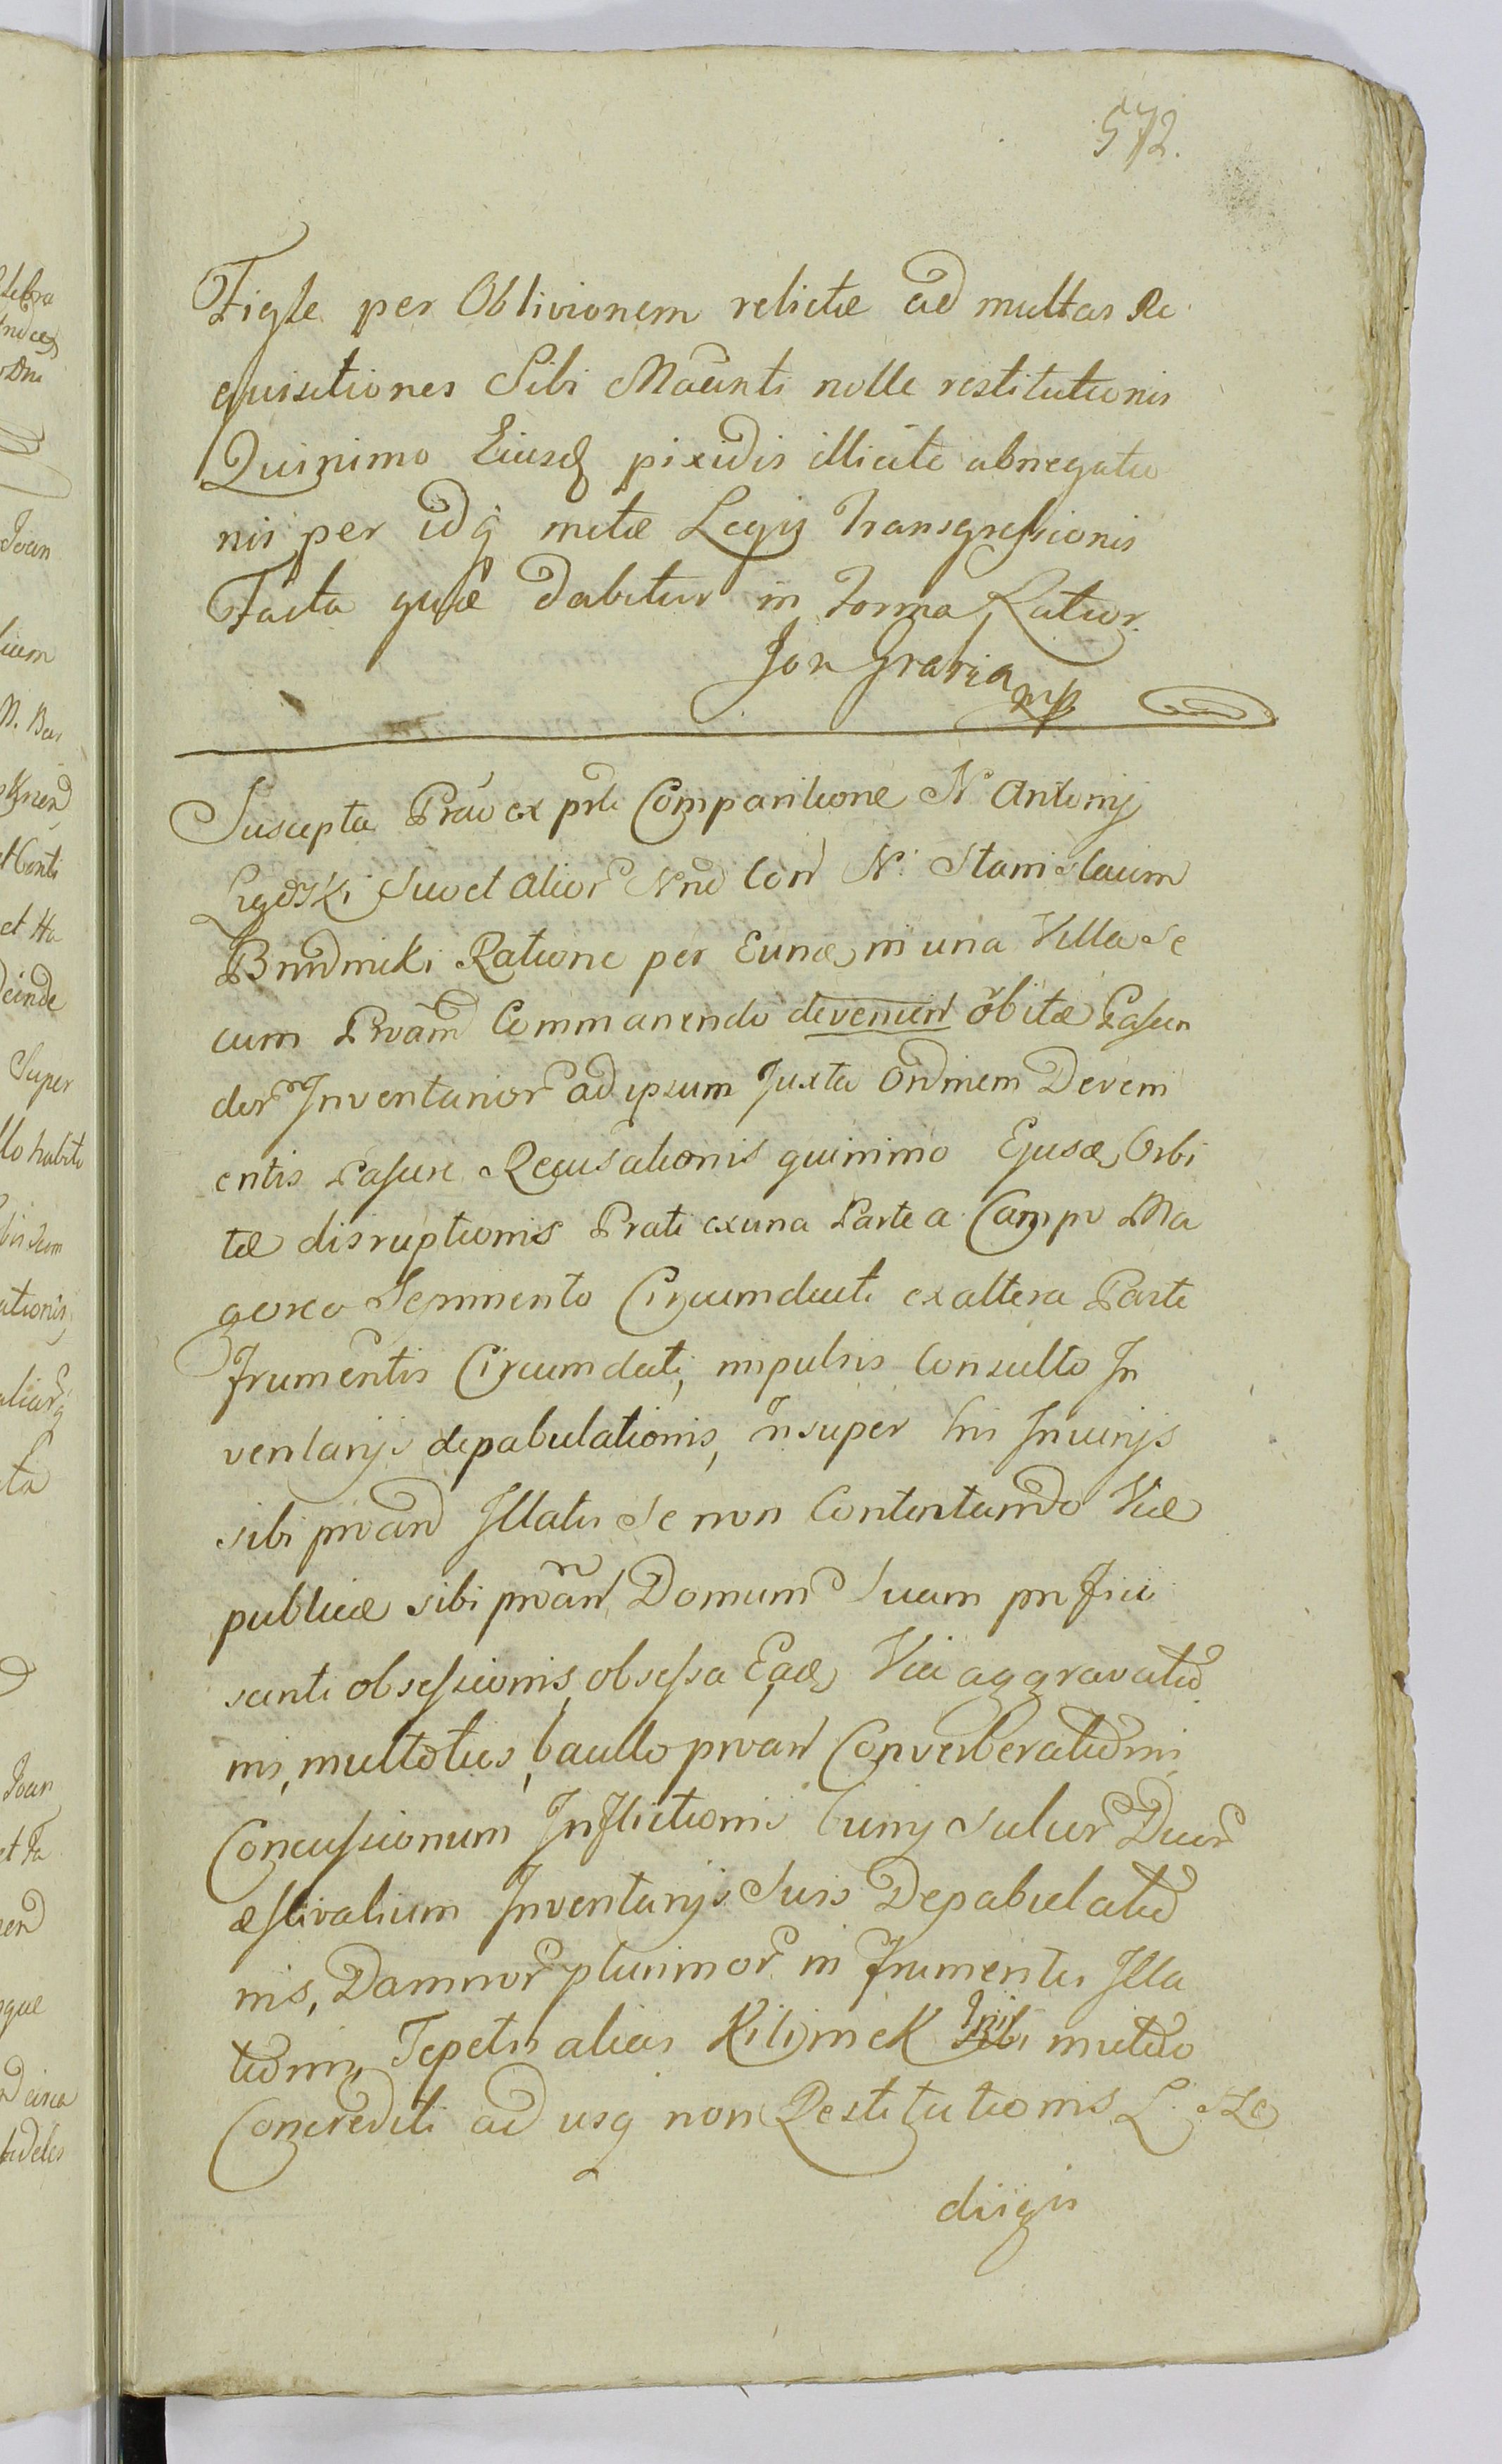 572.
Figle per Oblivionem relictæ ad multas Re
quisitiones Sibi Maãnti nolle restitutionis
Quinimo Eiusd pixidis illicite abnegatio
nis per idq metæ Legis Transgressionis
Facta quæ dabitur in Forma Latior.
Jon Graria mp
Suscepta Prãv ex prte Comparitione N. Antonij
Suo et alior Nnõ Con N. Stanislaum
Ratione per Eund in una Villa Se
cum Prõand Commanendo devenien orbitæ Pascen
dor Inventarior ad ipsum Juxta Ordinem Deveni
entis Pascere Recusationis quinimo Ejusd Orbi
tæ disruptionis Prati ex una Parte a Campo Ma
gerco Sepimento Circumducti ex altera Parte
Frumentis Circumdati, impulsis Consulto In
ventarijs depabulationis, insuper his Injurijs
sibi proand Illatis Se non Contentando Viæ
publicæ sibi proand Domum Suam profici
scenti obsessionis, obsessa Ead Via aggravatio
nis, multoties, baculo proand Converberationis,
Concussionum Inflictionis Cuiusq sulcor Duor
æstivalium Inventarijs Suis Depabulatio
nis, Damnor plurimor in Frumentis Illa
tionis, Tepetis alias Kilimek Inib mutuo
Concrediti ad usq non Restitutionis L. Se
diigis